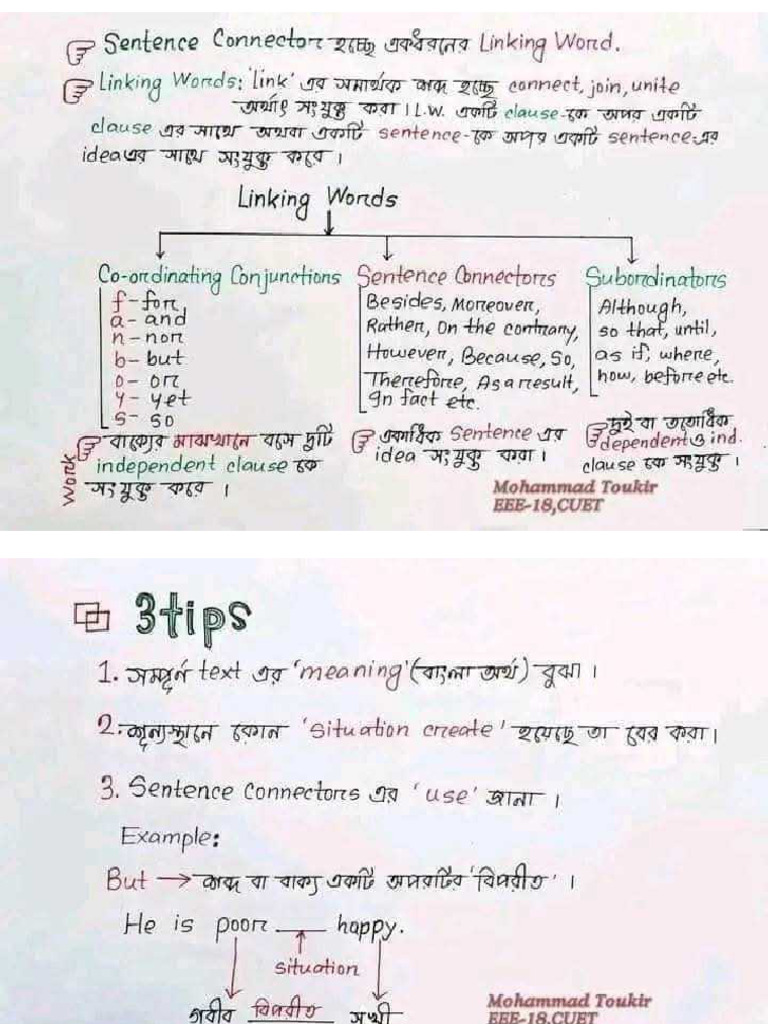 Sentence Connector হচ্ছে একধরনের Linking Word.
Linking Words: 'link' এর সমার্থক শব্দ হচ্ছে connect, join, unite
অর্থাৎ সংযুক্ত করা। L.W. একটি clause-কে অপর একটি
clause এর সাথে অথবা একটি sentence-কে অপর একটি sentence-এর
idea এর সাথে সংযুক্ত করে।
Linking Words
Co-ordinating Conjunctions
f-for
a-and
n-nor
b-but
o-or
y-yet
s-so
Work
বাক্যের মাঝখানে বসে দুটি
independent clause কে
সংযুক্ত করে।
Sentence Connectors
Besides, Moreover,
Rather, On the contrary,
However, Because, So,
Therefore, As a result,
In fact etc.
একাধিক Sentence এর
idea সংযুক্ত করা।
Subordinators
Although,
so that, until,
as if, where,
how, before etc.
দুই বা ততোধিক
dependent ও ind.
clause কে সংযুক্ত।
Mohammad Toukir
EEE-18,CUET
3tips
1. সম্পূর্ন text এর 'meaning' (বাংলা অর্থ) বুঝা।
2. শূন্যস্থানে কোন 'situation create' হয়েছে তা বের করা।
3. Sentence Connectors এর 'use' জানা।
Example:
But → শব্দ বা বাক্য একটি অপরটির 'বিপরীত'।
He is poor ___ happy.
situation
গরীব বিপরীত সুখী
Mohammad Toukir
EEE-18,CUET